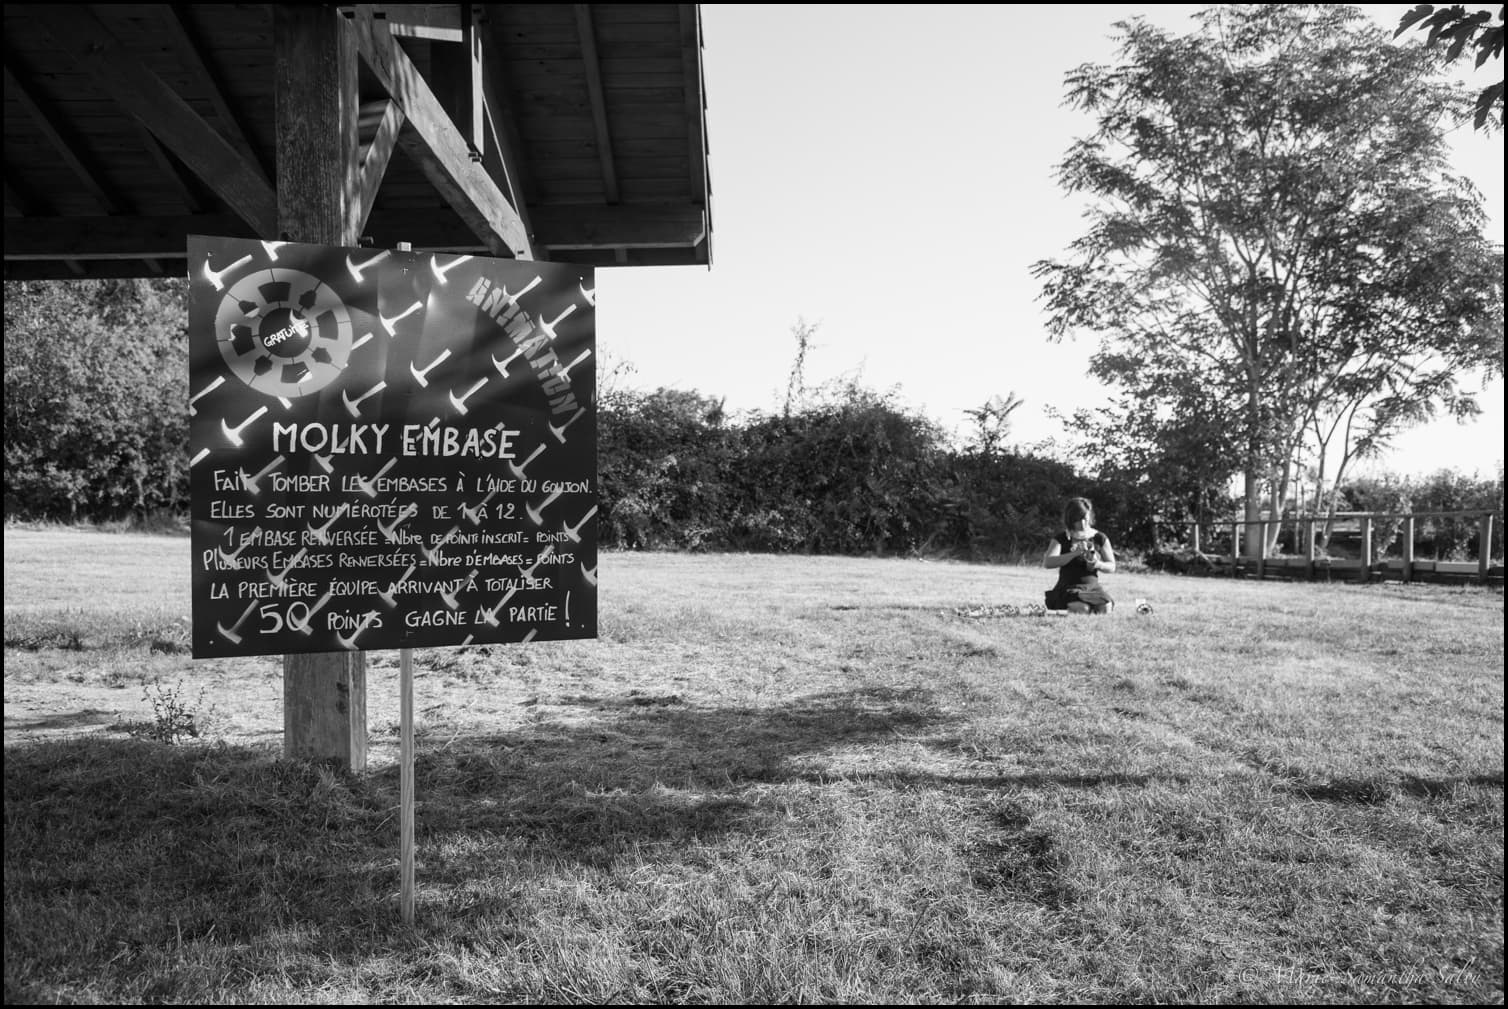 GRATUITE
ANIMATION
MOLKY EMBASE
FAIT TOMBER LES EMBASES À L'AIDE DU GOUJON.
ELLES SONT NUMÉROTÉES DE 1 À 12.
1 EMBASE RENVERSÉE = Nbre DE POINTS INSCRIT = POINTS
PLUSIEURS EMBASES RENVERSÉES = Nbre D'EMBASES = POINTS
LA PREMIÈRE ÉQUIPE ARRIVANT À TOTALISER
50 POINTS GAGNE LA PARTIE !
© Marie-Samantha Salvy